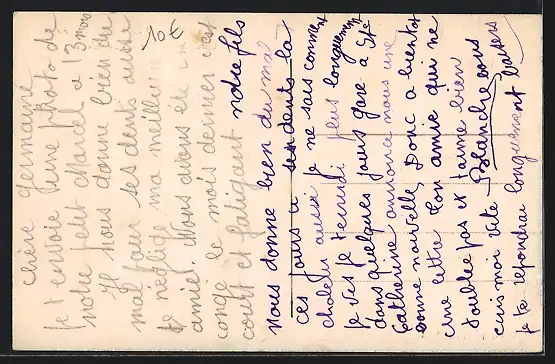 10€
Chère Germaine
Je t'envoie une photo de
notre petit Marcel a 13 mois
Il nous donne bien du
mal pour ses dents aussi
je néglige ma meilleure
amie. Nous avons été
congé le mois dernier c'est
court et fatigant notre fils
nous donne bien du mal
ces jours a ses dents la
chaleur aussi je ne sais comment
je vis je t'ennuie plus longuement
dans quelques jours gare a Ste
Catherine annonce nous une
bonne nouvelle. Donc a bientot
une lettre Ton amie qui ne
t'oublie pas et t'aime bien
ecris moi vite Blanche vous
je te repondrai longuement baisers